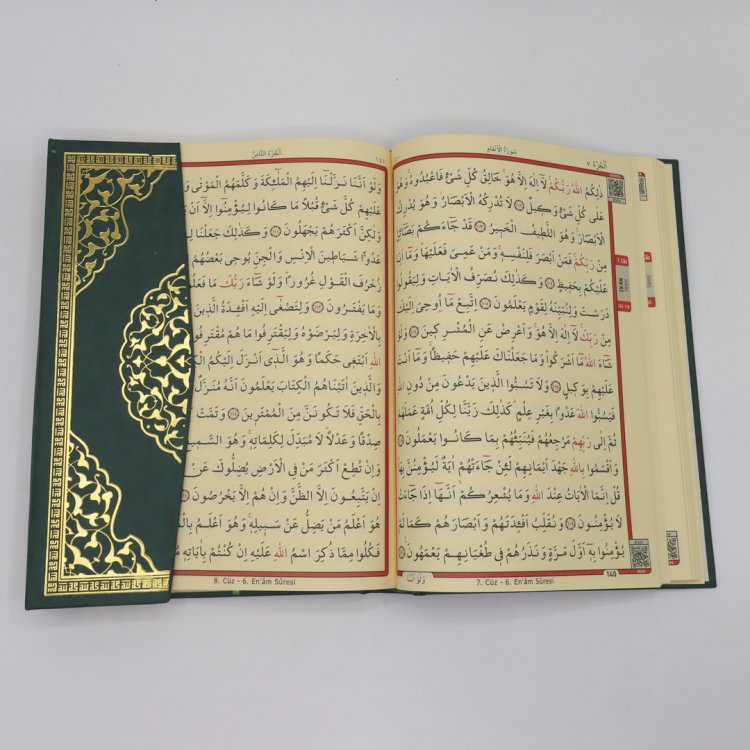 اَلْجُزْءُ ٧
سُورَةُ الْاَنْعَامِ
ذٰلِكُمُ اللّٰهُ رَبُّكُمْۚ لَٓا اِلٰهَ اِلَّا هُوَۚ خَالِقُ كُلِّ شَيْءٍ فَاعْبُدُوهُۚ وَهُوَ
عَلٰى كُلِّ شَيْءٍ وَكٖيلٌ ﴿١٠٢﴾ لَا تُدْرِكُهُ الْاَبْصَارُؗ وَهُوَ يُدْرِكُ
الْاَبْصَارَۚ وَهُوَ اللَّطٖيفُ الْخَبٖيرُ ﴿١٠٣﴾ قَدْ جَٓاءَكُمْ بَصَٓائِرُ
مِنْ رَبِّكُمْۚ فَمَنْ اَبْصَرَ فَلِنَفْسِهٖۚ وَمَنْ عَمِيَ فَعَلَيْهَاۜ وَمَٓا اَنَا۬
عَلَيْكُمْ بِحَفٖيظٍ ﴿١٠٤﴾ وَكَذٰلِكَ نُصَرِّفُ الْاٰيَاتِ وَلِيَقُولُوا
دَرَسْتَ وَلِنُبَيِّنَهُ لِقَوْمٍ يَعْلَمُونَ ﴿١٠٥﴾ اِتَّبِعْ مَٓا اُو۫حِيَ اِلَيْكَ
مِنْ رَبِّكَۚ لَٓا اِلٰهَ اِلَّا هُوَۚ وَاَعْرِضْ عَنِ الْمُشْرِكٖينَ ﴿١٠٦﴾ وَلَوْ
شَٓاءَ اللّٰهُ مَٓا اَشْرَكُواۜ وَمَا جَعَلْنَاكَ عَلَيْهِمْ حَفٖيظًاۚ وَمَٓا اَنْتَ
عَلَيْهِمْ بِوَكٖيلٍ ﴿١٠٧﴾ وَلَا تَسُبُّوا الَّذٖينَ يَدْعُونَ مِنْ دُونِ اللّٰهِ
فَيَسُبُّوا اللّٰهَ عَدْوًا بِغَيْرِ عِلْمٍۜ كَذٰلِكَ زَيَّنَّا لِكُلِّ اُمَّةٍ عَمَلَهُمْ
ثُمَّ اِلٰى رَبِّهِمْ مَرْجِعُهُمْ فَيُنَبِّئُهُمْ بِمَا كَانُوا يَعْمَلُونَ ﴿١٠٨﴾
وَاَقْسَمُوا بِاللّٰهِ جَهْدَ اَيْمَانِهِمْ لَئِنْ جَٓاءَتْهُمْ اٰيَةٌ لَيُؤْمِنُنَّ بِهَاۜ
قُلْ اِنَّمَا الْاٰيَاتُ عِنْدَ اللّٰهِ وَمَا يُشْعِرُكُمْۙ اَنَّهَٓا اِذَا جَٓاءَتْ
لَا يُؤْمِنُونَ ﴿١٠٩﴾ وَنُقَلِّبُ اَفْـِٔدَتَهُمْ وَاَبْصَارَهُمْ كَمَا لَمْ
يُؤْمِنُوا بِهٖٓ اَوَّلَ مَرَّةٍ وَنَذَرُهُمْ فٖي طُغْيَانِهِمْ يَعْمَهُونَ ﴿١١٠﴾
وَلَوْ اَنَّنَا
7. Cüz - 6. En'âm Sûresi
140
7. Cüz
اَلْجُزْءُ الثَّامِنُ
وَلَوْ اَنَّنَا نَزَّلْنَٓا اِلَيْهِمُ الْمَلٰٓئِكَةَ وَكَلَّمَهُمُ الْمَوْتٰى
عَلَيْهِمْ كُلَّ شَيْءٍ قُبُلًا مَا كَانُوا لِيُؤْمِنُٓوا اِلَّٓا اَنْ
وَلٰكِنَّ اَكْثَرَهُمْ يَجْهَلُونَ ﴿١١١﴾ وَكَذٰلِكَ جَعَلْنَا
عَدُوًّا شَيَاطٖينَ الْاِنْسِ وَالْجِنِّ يُوحٖي بَعْضُهُمْ
زُخْرُفَ الْقَوْلِ غُرُورًاۜ وَلَوْ شَٓاءَ رَبُّكَ مَا
وَمَا يَفْتَرُونَ ﴿١١٢﴾ وَلِتَصْغٰٓى اِلَيْهِ اَفْـِٔدَةُ الَّذٖينَ
بِالْاٰخِرَةِ وَلِيَرْضَوْهُ وَلِيَقْتَرِفُوا مَا هُمْ
اللّٰهِ اَبْتَغٖي حَكَمًا وَهُوَ الَّذٖٓي اَنْزَلَ اِلَيْكُمُ
وَالَّذٖينَ اٰتَيْنَاهُمُ الْكِتَابَ يَعْلَمُونَ اَنَّهُ مُنَزَّلٌ
بِالْحَقِّ فَلَا تَكُونَنَّ مِنَ الْمُمْتَرٖينَ ﴿١١٤﴾ وَتَمَّتْ
صِدْقًا وَعَدْلًاۜ لَا مُبَدِّلَ لِكَلِمَاتِهٖۚ وَهُوَ
وَاِنْ تُطِعْ اَكْثَرَ مَنْ فِي الْاَرْضِ يُضِلُّوكَ عَنْ
اِنْ يَتَّبِعُونَ اِلَّا الظَّنَّ وَاِنْ هُمْ اِلَّا يَخْرُصُونَ ﴿١١٦﴾
هُوَ اَعْلَمُ مَنْ يَضِلُّ عَنْ سَبٖيلِهٖۚ وَهُوَ اَعْلَمُ
فَكُلُوا مِمَّا ذُكِرَ اسْمُ اللّٰهِ عَلَيْهِ اِنْ كُنْتُمْ بِاٰيَاتِهٖ
8. Cüz - 6. En'âm Sûresi